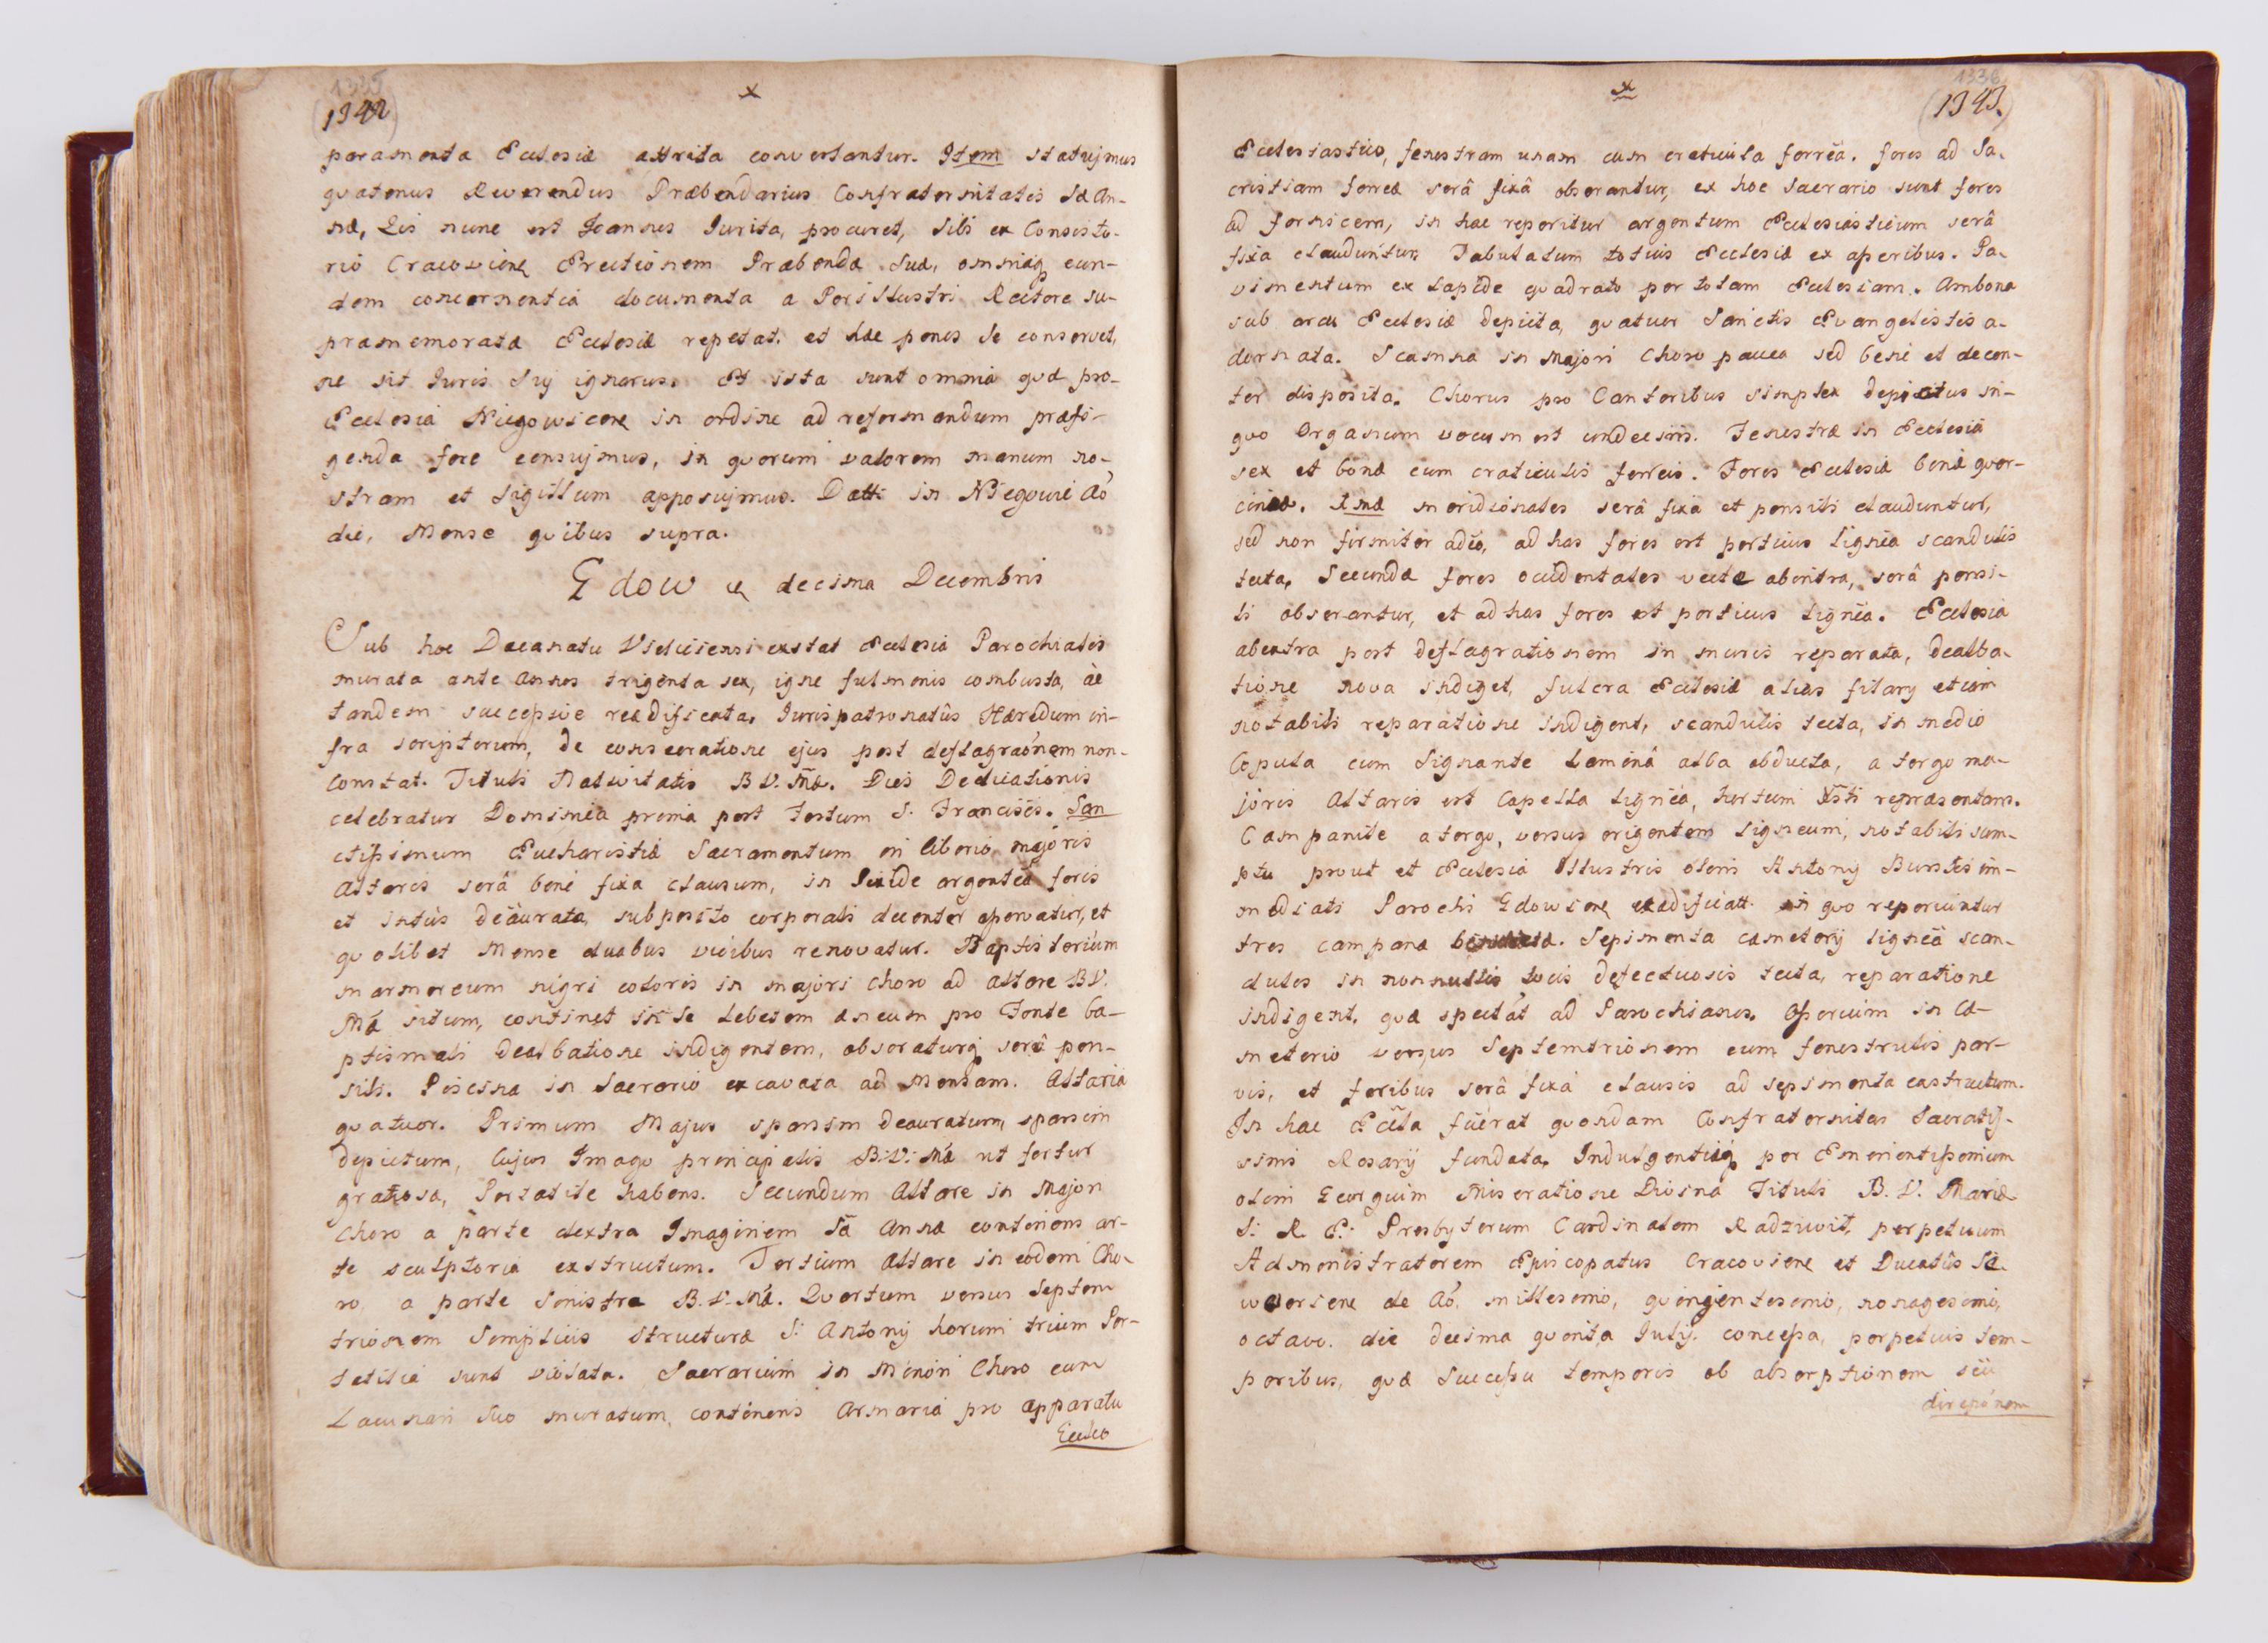 1335
(1342)
x
paramenta Ecclesiæ attrita convertantur. Item statujmus
quatenus Reverendus Præbendarius Confraternitatis Sæ An-
næ, Qis nunc est Joannes Jurita, procuret, sibi ex Consisto-
rio Cracovien Erectionem Præbendæ suæ, omniaq eun-
dem concernentia documenta a Perillustri Rectore su-
pramemoratæ Ecclesiæ repetat, et hæc penes se conservet,
ne sit Iuris Sui ignarus. Et ista sunt omnia quæ pro
Ecclesia Niegowicen in ordine ad reformandum præfi-
genda fore censujmus, in quorum valorem manum no-
stram et sigillum apposujmus. Datt: in Niegowić Aō
die, Mense quibus supra.
Gdow decima Decembris
Sub hoc Decanatu Vieliciensi exstat Ecclesia Parochialis
murata ante annos triginta sex, igne fulminis combusta, ac
tandem successive reædificata, Iurispatronatûs Hæredum in-
fra scriptorum, de consecratione ejus post deflagraōnem non
constat. Tituli Nativitatis B V. Mæ. Dies Dedicationis
celebratur Dominica prima post Festum S. Francisci. San
ctissimum Eucharistiæ Sacramentum in Ciborio majoris
Altaris serâ bene fixa clausum, in Pixide argentea foris
et intùs deäurata, subposito corporali decenter asservatur, et
quolibet Mense duabus vicibus renovatur. Baptisterium
marmoreum nigri coloris in majori choro ad altare B V.
Mæ situm, continet in se Lebetem æneum pro Fonte ba-
ptismali dealbatione indigentem, obseraturq serâ pen-
sili. Piscina in Sacrario excavata ad Mensam. Altaria
quatuor. Primum Majus sparsim deauratum, sparsim
depictum, Cujus Imago principalis B: V: Mæ ut fertur
gratiosa, Portatile habens. Secundum Altare in Majori
Choro a parte dextra Imaginem Sæ Annæ continens ar-
te sculptoria exstructum. Tertium Altare in eodem Cho-
ro, a parte sinistra B. V. Mæ. Quartum versus Septem
trionem simplicis structuræ S: Antonij horum trium Por-
tatilia sunt violata. Sacrarium in Minori Choro cum
Lacunari suo muratum, continens Armaria pro apparatu
Eccleo
x
1336
(1343)
Ecclesiastico, fenestram unam cum craticula ferrëa. fores ad Sa-
cristiam ferreæ serâ fixâ obserantur, ex hoc Sacrario sunt fores
ad fornicem, in hac reperitur argentum Ecclesiasticum serâ
fixa clauduntur. Tabulatum totius Ecclesiæ ex asseribus. Pa-
vimentum ex lapide quadrato per totam Ecclesiam. Ambona
sub arcu Ecclesiæ depicta, quatuor Sanctis Evangelistis a-
dornata. Scamna in Majori Choro pauca sed bene et decen-
ter disposita. Chorus pro Cantoribus simplex depictus in-
quo Organum vocum est undecim. Fenestræ in Ecclesia
sex et bonæ cum craticulis ferreis. Fores Ecclesiæ bonæ quer-
cinæ. Imæ meridionales serâ fixa et pensili clauduntur,
sed non firmiter adëo, ad has fores est porticus lignëa scandulis
tecta, Secundæ fores occidentales vecte abintra, serâ pensi-
li obserantur, et ad has fores est porticus lignëa. Ecclesia
abextra post deflagrationem in muris reparata, dealba-
tione nova indiget, fulcra Ecclesiæ alias filary etiam
notabili reparatione indigent, scandulis tecta, in medio
Copula cum Signante laminâ alba obducta, a tergo ma-
joris Altaris est Capella lignëa, hortum Xsti repræsentans.
Campanile a tergo, versus orientem ligneum, notabili sum-
ptu prout et Ecclesia Illustris olim Antonij Bursztis im-
mediati Parochi Gdowien exædificatt. in quo reperiuntur
tres campanæ. Sepimenta cæmeterij lignëa scan-
dules in nonnullis locis defectuosis tecta, reparatione
indigent, quæ spectât ad Parochianos. Ossorium in Cæ-
meterio versus Septemtrionem cum fenestrulis par-
vis, et foribus serâ fixâ clausis ad sepimenta exstructum.
In hac Eccla füerat quondam Confraternitas Sacratis-
simi Rosarij fundata, Indulgentiisq per Eminentissimum
olim Georgium Miseratione Divina Tituli B. V. Mariæ
S: R. E: Presbyterum Cardinalem Radziwił, perpetuum
Administratorem Episcopatus Cracovien et Ducatûs Se-
verien de Aō. millesimo, quingentesimo, nonagesimo,
octavo. die decima quinta Julij. concessa, perpetuis tem-
poribus, quæ Successu temporis ob absorptionem sëu
direpōnem